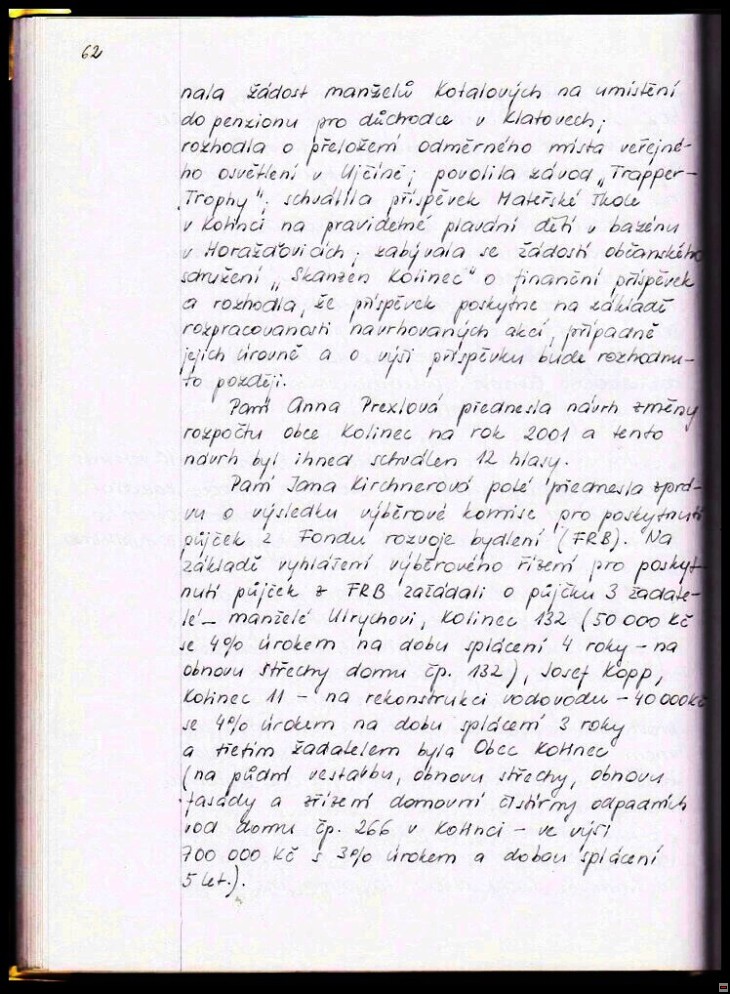 62
nala žádost manželů Kotalových na umístění
do penzionu pro důchodce v Klatovech;
rozhodla o přeložení odměrného místa veřejné-
ho osvětlení v Ujčíně; povolila závod „Trapper-
Trophy"; schválila příspěvek Mateřské škole
v Kolinci na pravidelné plavání dětí v bazénu
v Horažďovicích; zabývala se žádostí občanského
sdružení „Skanzen Kolinec" o finanční příspěvek
a rozhodla, že příspěvek poskytne na základě
rozpracovanosti navrhovaných akcí, případně
jejich úrovně a o výši příspěvku bude rozhodnu-
to později.
Paní Anna Prexlová přednesla návrh změny
rozpočtu obce Kolinec na rok 2001 a tento
návrh byl ihned schválen 12 hlasy.
Paní Jana Kirchnerová poté přednesla zprá-
vu o výsledku výběrové komise pro poskytnutí
půjček z Fondu rozvoje bydlení (FRB). Na
základě vyhlášení výběrového řízení pro poskyt-
nutí půjček z FRB zažádali o půjčku 3 žadate-
lé – manželé Ulrychovi, Kolinec 132 (50 000 Kč
se 4% úrokem na dobu splácení 4 roky – na
obnovu střechy domu čp. 132), Josef Kopp,
Kolinec 11 – na rekonstrukci vodovodu – 40 000 Kč
se 4% úrokem na dobu splácení 3 roky
a třetím žadatelem byla Obec Kolinec
(na půdní vestavbu, obnovu střechy, obnovu
fasády a zřízení domovní čistírny odpadních
vod domu čp. 266 v Kolinci – ve výši
700 000 Kč s 3% úrokem a dobou splácení
5 let.).